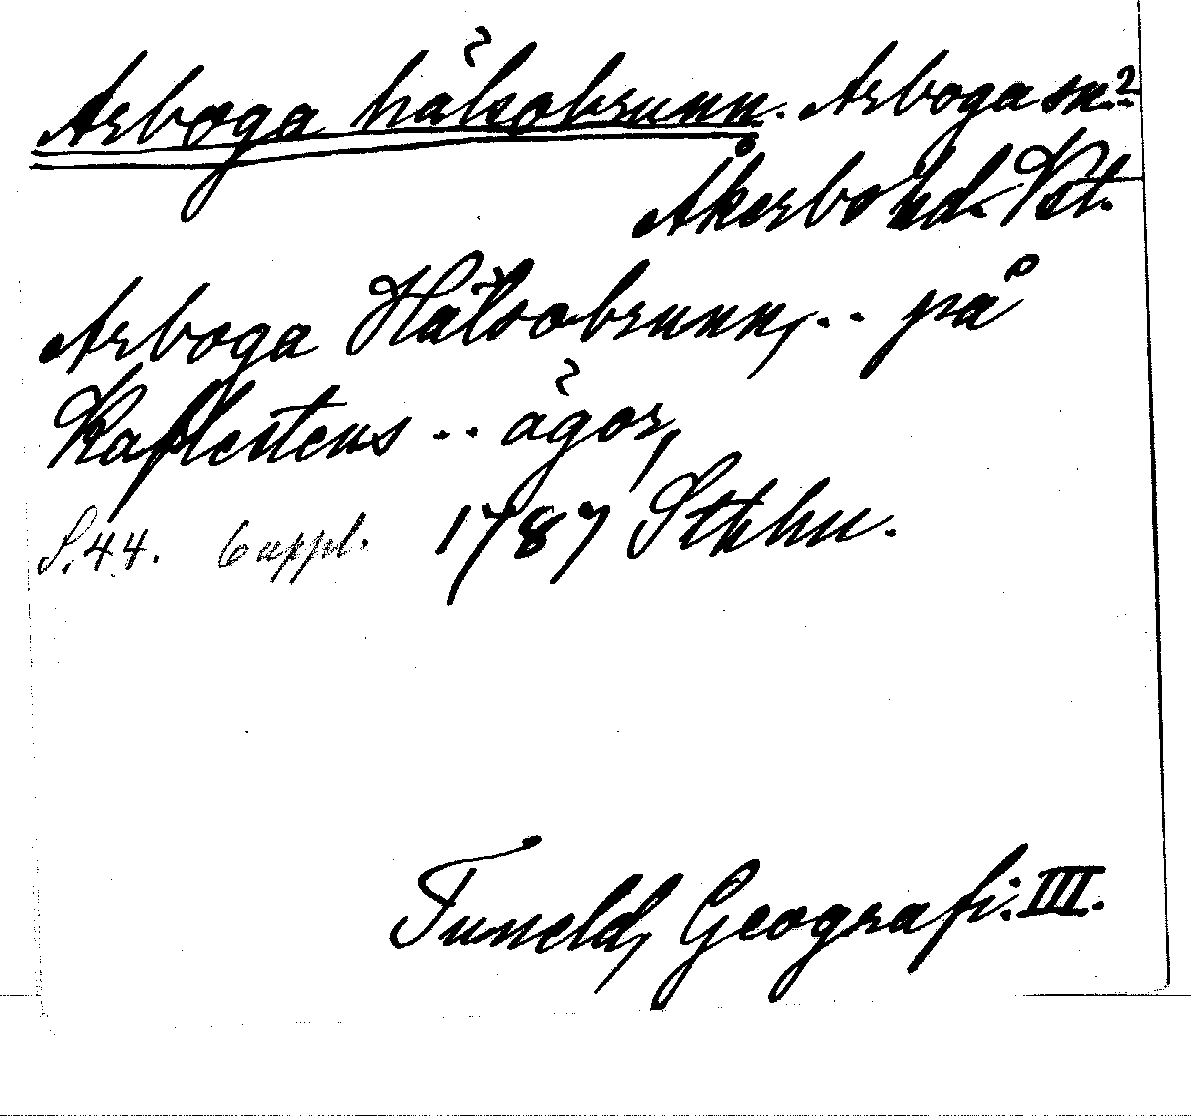 Arboga hälsobrunn. Arboga sn?
Åkerbo hd. Vstm.
Arboga Hälsobrunn, .. på
Kaflestens .. ägor,
S. 44. 6 uppl. 1787 Sthlm.
Tuneld, Geografi: III.